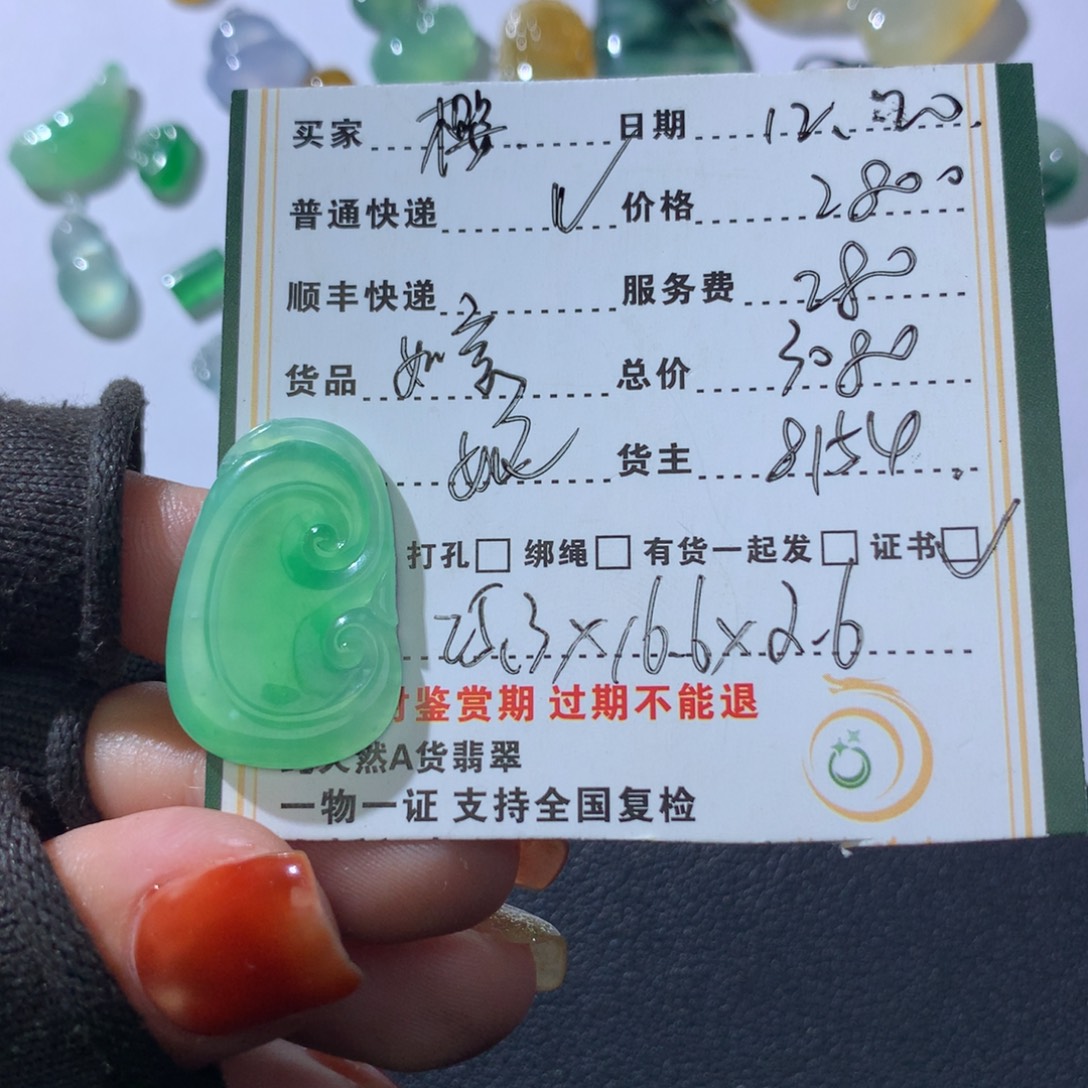 买家 樱 日期 12.20.
普通快递 √ 价格 2800
顺丰快递 服务费 280
货品 如意 总价 3080
货主 8154.
打孔□ 绑绳□ 有货一起发□ 证书☑
25.3×16.6×2.6
鉴赏期 过期不能退
天然A货翡翠
一物一证 支持全国复检